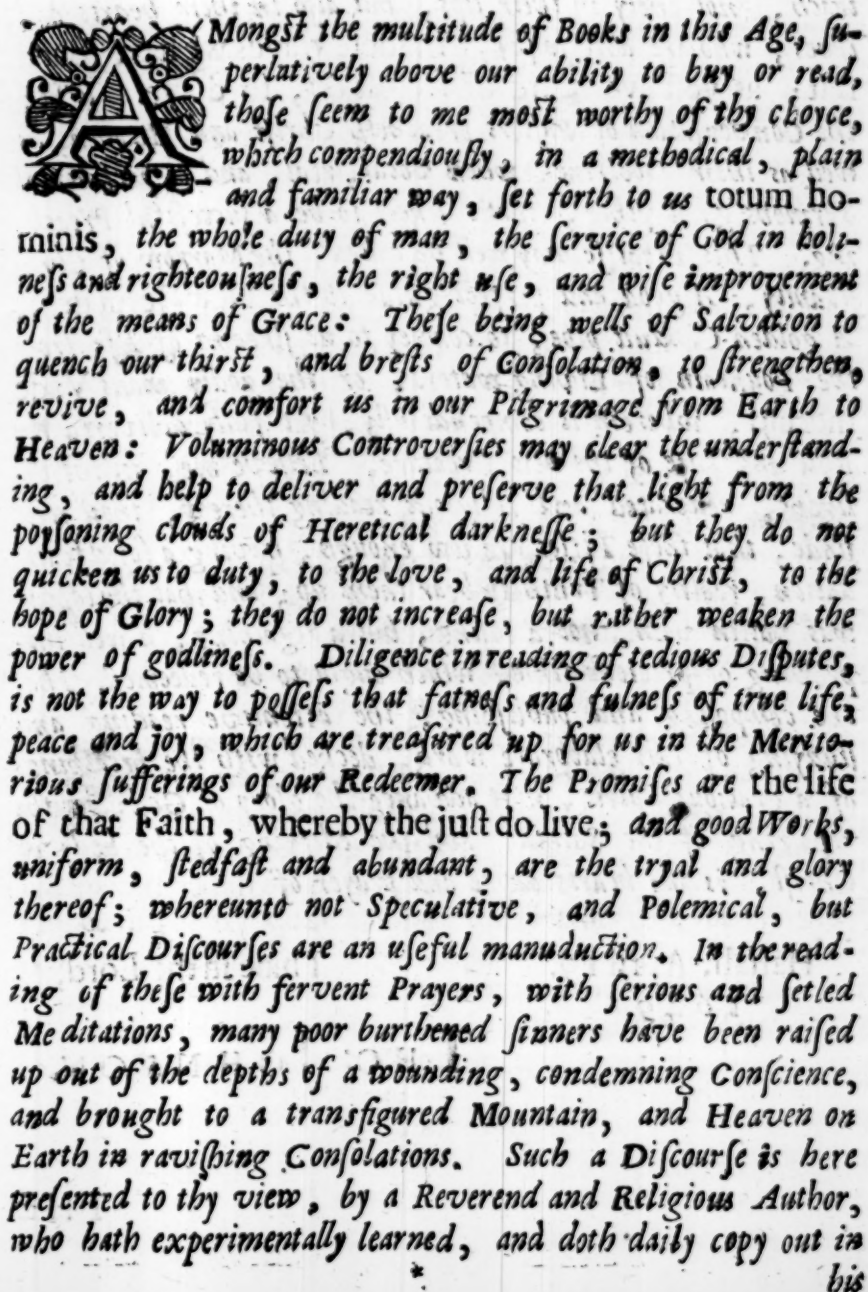 AMongſt the multitude of Books in this Age, ſu-
perlatively above our ability to buy or read,
thoſe ſeem to me moſt worthy of thy choyce,
which compendiouſly, in a methodical, plain
and familiar way, ſet forth to us totum ho-
minis, the whole duty of man, the ſervice of God in holi-
neſs and righteouſneſs, the right uſe, and wiſe improvement
of the means of Grace: Theſe being wells of Salvation to
quench our thirſt, and breſts of Conſolation, to ſtrengthen,
revive, and comfort us in our Pilgrimage from Earth to
Heaven: Voluminous Controverſies may clear the underſtand-
ing, and help to deliver and preſerve that light from the
poyſoning clouds of Heretical darkneſſe; but they do not
quicken us to duty, to the love, and life of Chriſt, to the
hope of Glory; they do not increaſe, but rather weaken the
power of godlineſs. Diligence in reading of tedious Diſputes,
is not the way to poſſeſs that fatneſs and fulneſs of true life,
peace and joy, which are treaſured up for us in the Merito-
rious ſufferings of our Redeemer. The Promiſes are the life
of that Faith, whereby the juſt do live; and good Works,
uniform, ſtedfaſt and abundant, are the tryal and glory
thereof; whereunto not Speculative, and Polemical, but
Practical Diſcourſes are an uſeful manuduction. In the read-
ing of theſe with fervent Prayers, with ſerious and ſetled
Meditations, many poor burthened ſinners have been raiſed
up out of the depths of a wounding, condemning Conſcience,
and brought to a transfigured Mountain, and Heaven on
Earth in raviſhing Conſolations. Such a Diſcourſe is here
preſented to thy view, by a Reverend and Religious Author,
who hath experimentally learned, and doth daily copy out in
*
his